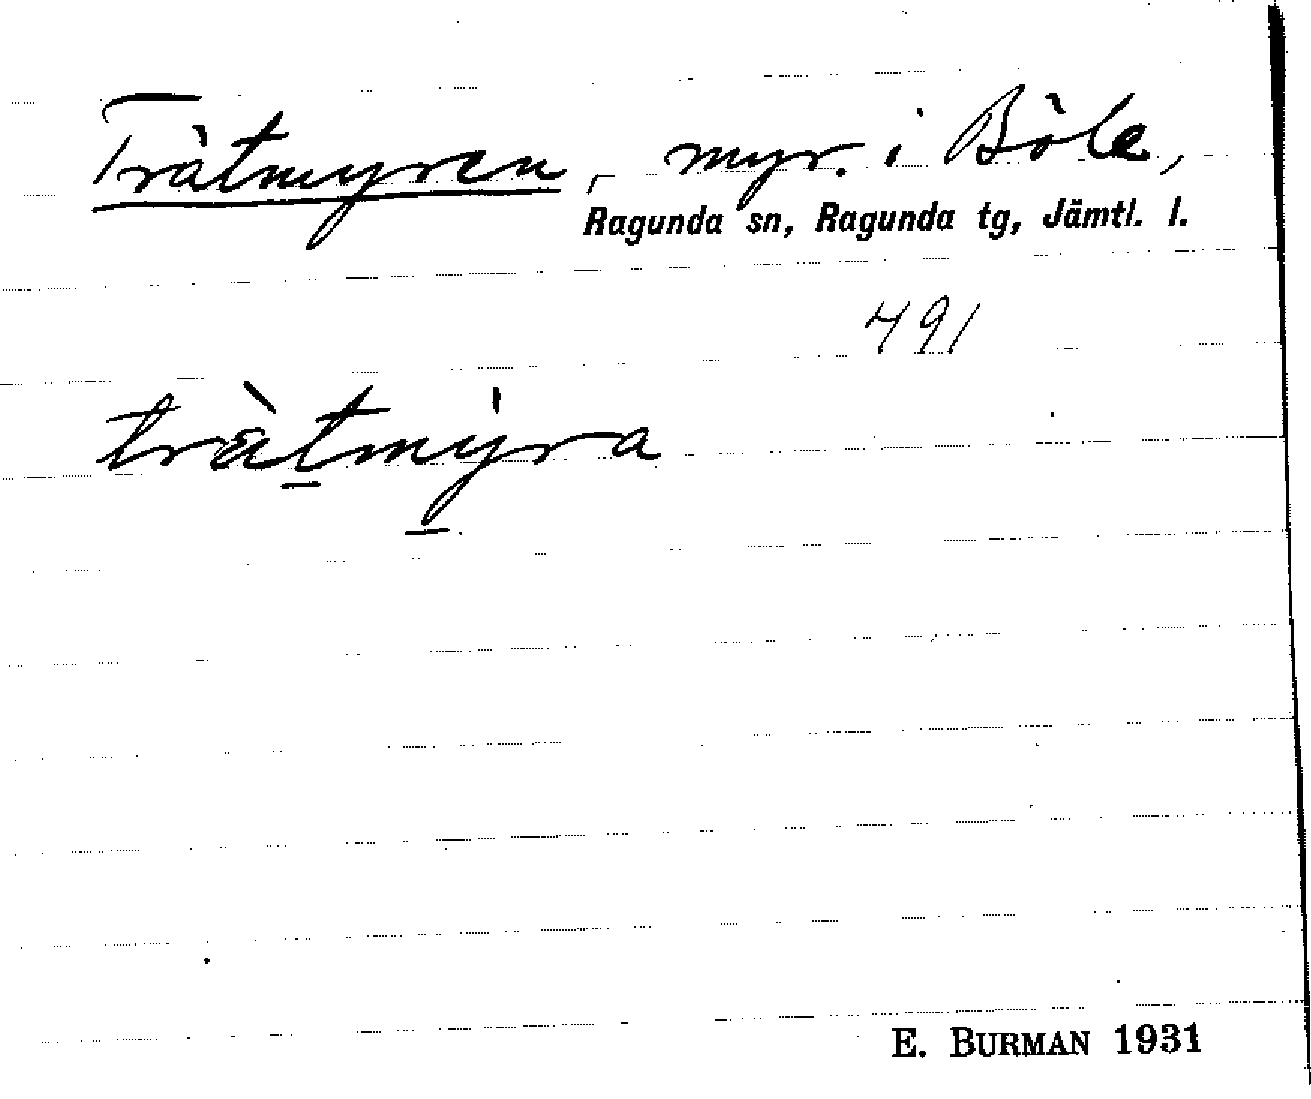 Tråtmyren, myr. i Böle,
Ragunda sn, Ragunda tg, Jämtl. l.
491
tràtmýra
E. BURMAN 1931